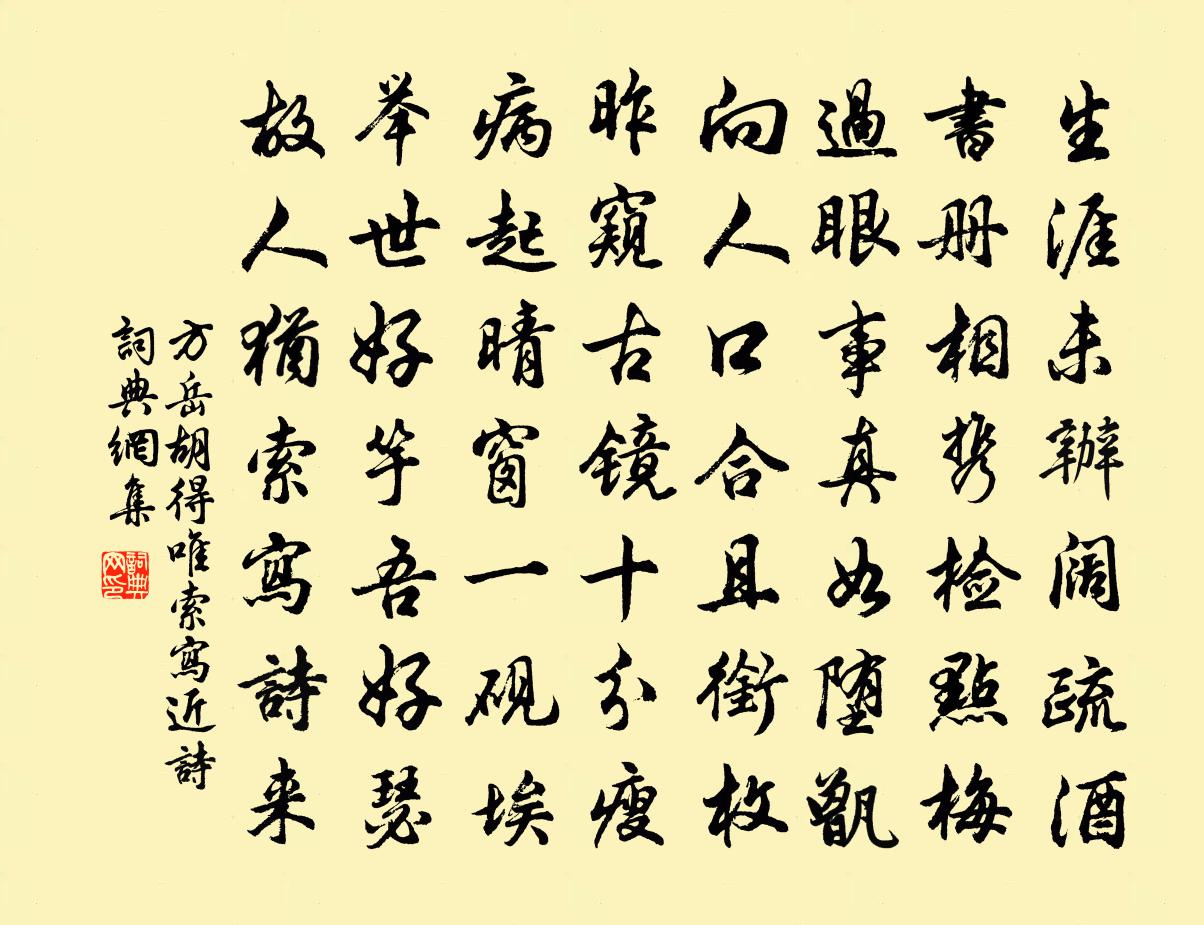 生涯未辦阔疏酒
書册相携检點梅
過眼事真如堕甑
向人口合且銜枚
昨窺古镜十分瘦
病起晴窗一砚埃
举世好竽吾好瑟
故人猶索寫詩来
方岳胡得唯索寫近詩
詞典網集
詞典网印